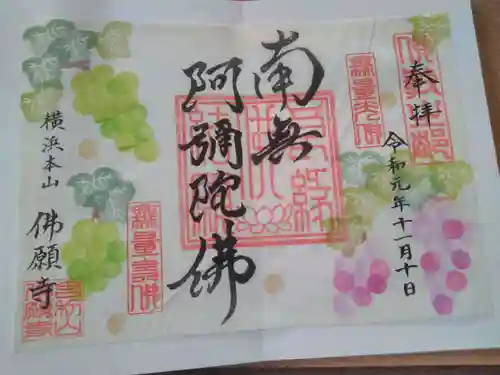 奉拝
令和元年十一月十日
南無
阿彌陀佛
横浜本山
佛願寺